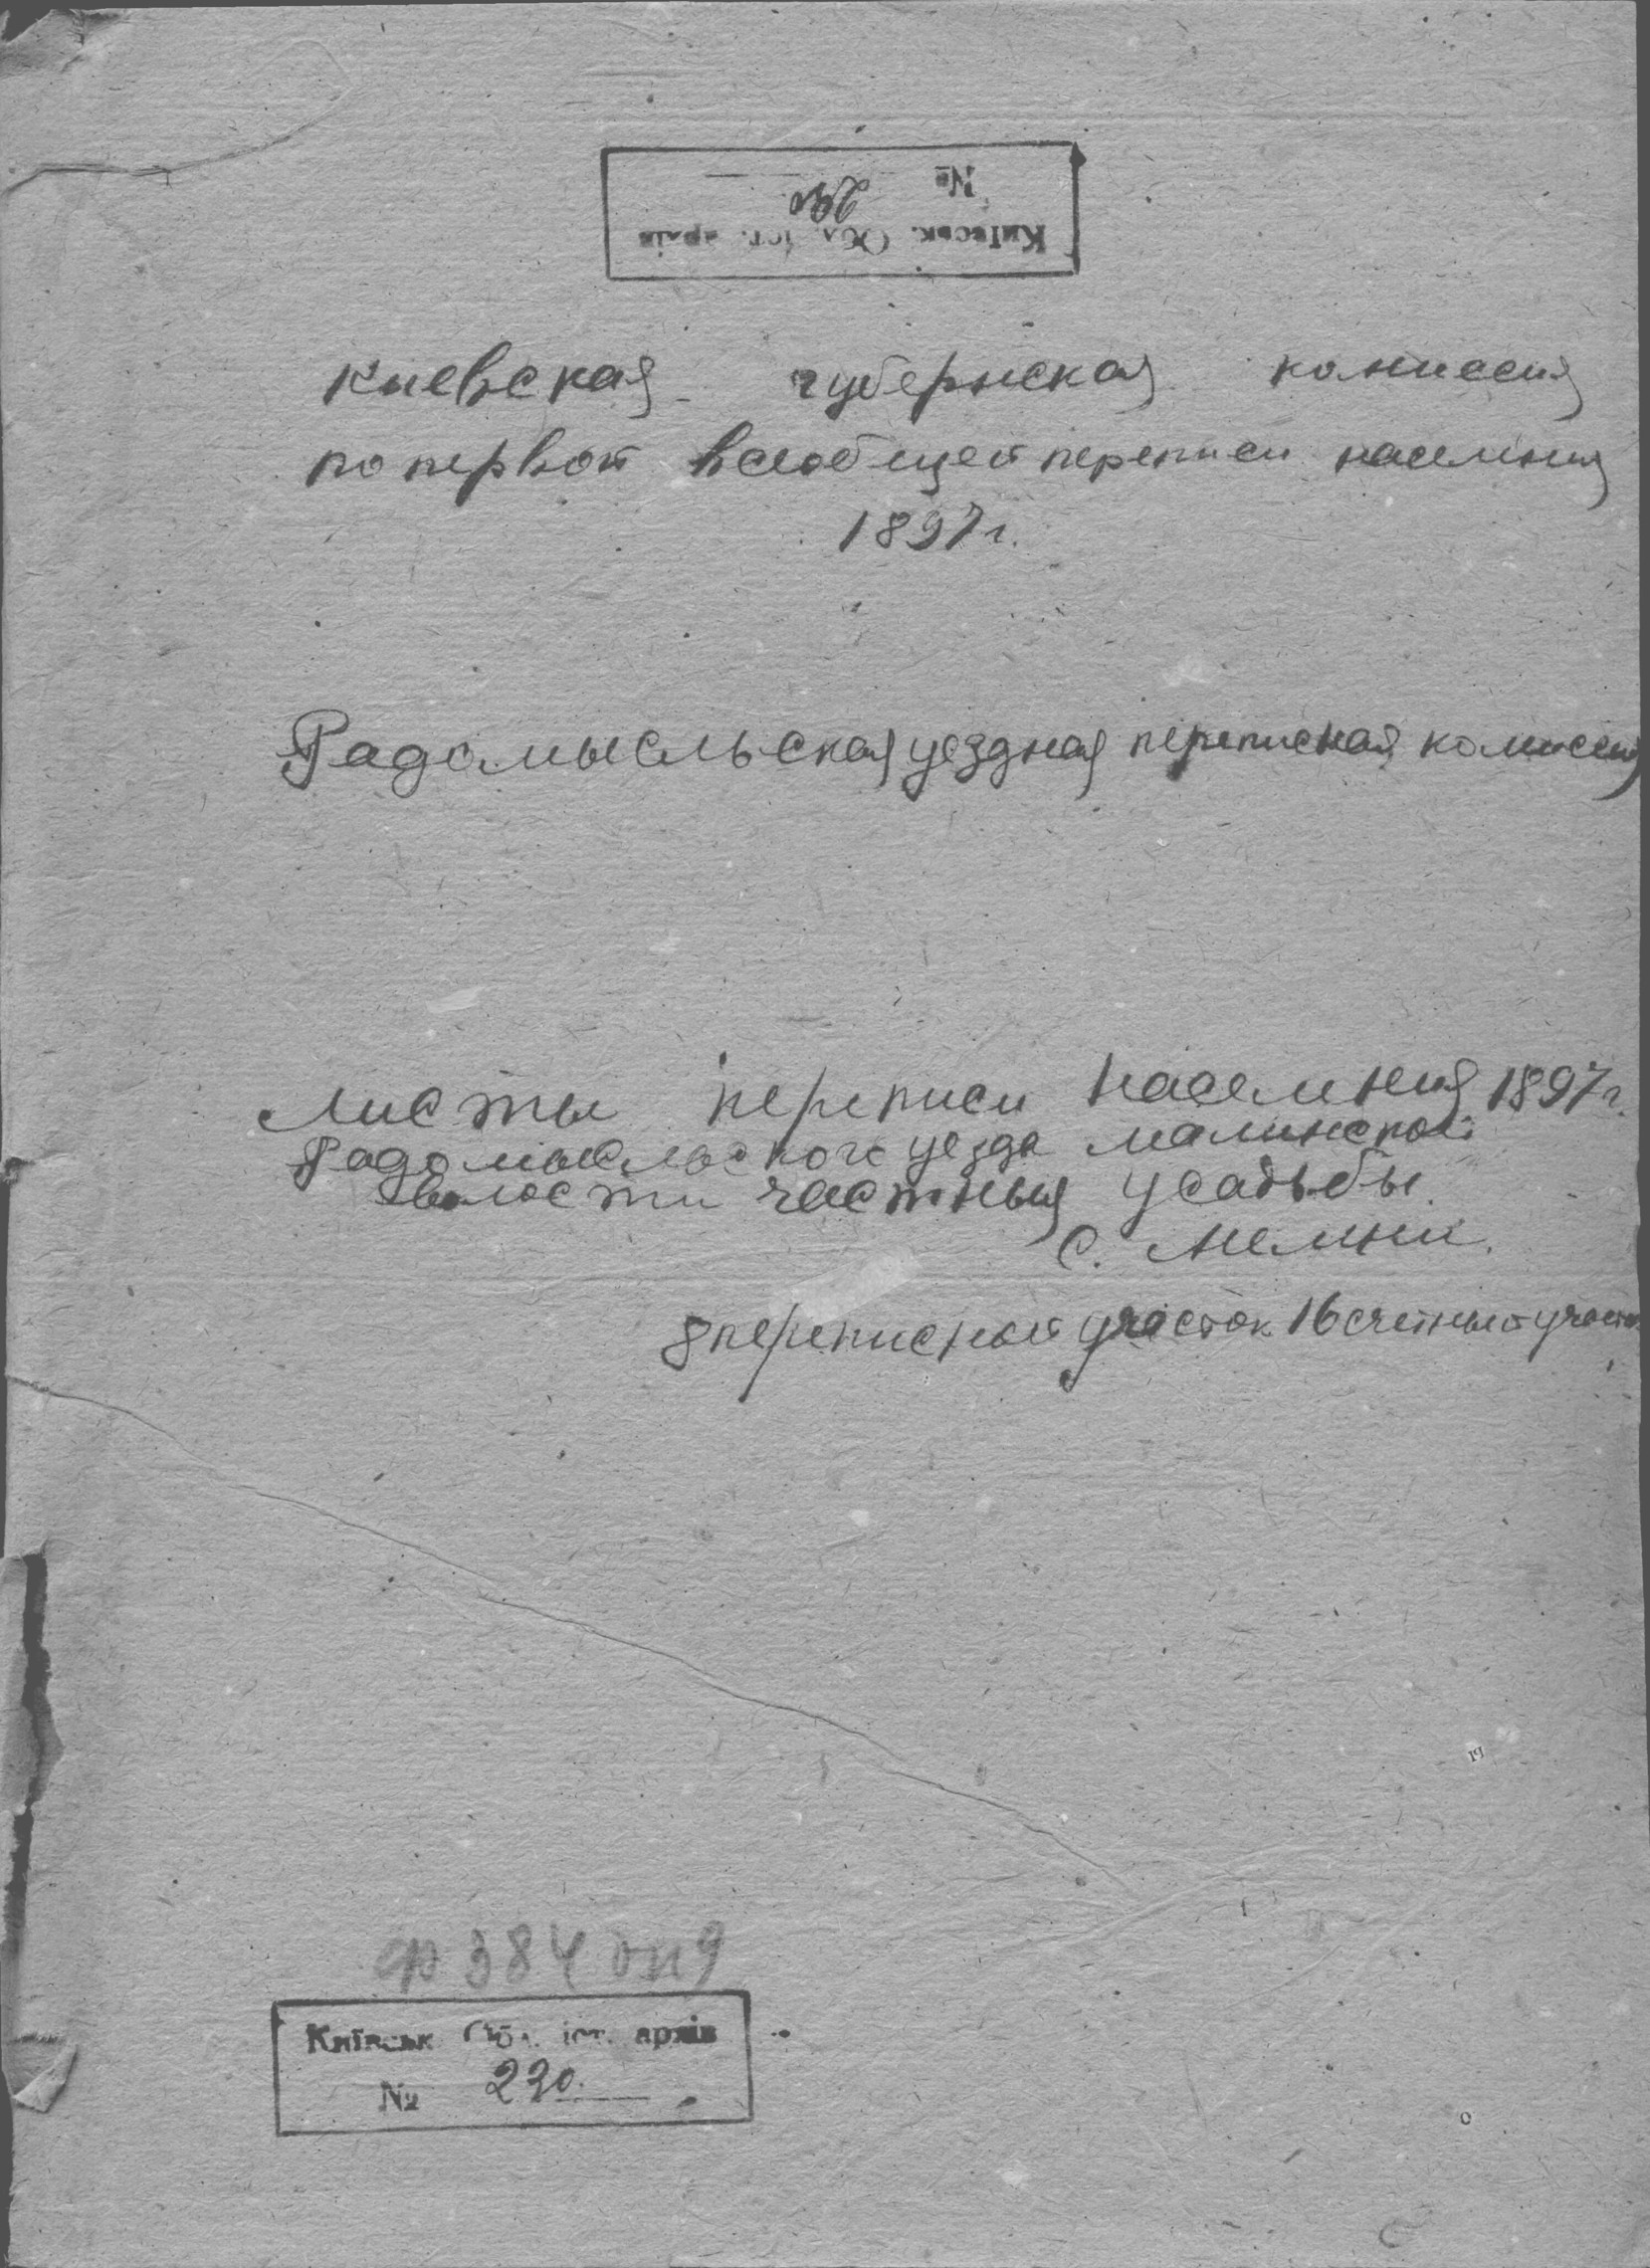 Київськ. Обл. іст. архів
№ 290
киевская губернская комиссия
по первой всеобщей переписи населения
1897 г.
Радомысльская уездная переписная комиссия
Листы переписи населения 1897 г.
Радомысльского уезда малинской
волости частныя усадьбы
с. Мелени.
8 переписной участок 16 счетный участок
ф 384 оп 9
Київськ Обл. іст. архів
№ 290.